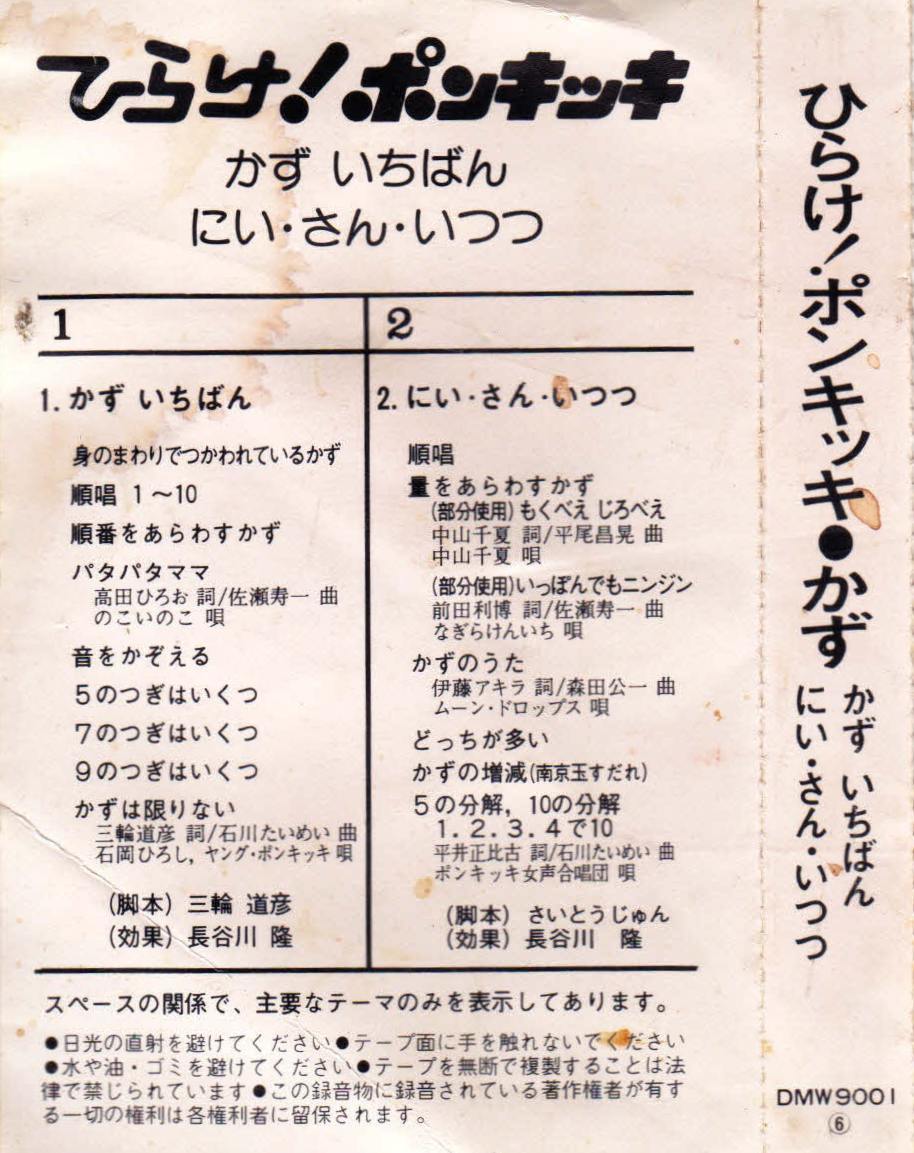 ひらけ!ポンキッキ
かず いちばん
にい・さん・いつつ
1
1. かず いちばん
身のまわりでつかわれているかず
順唱 1〜10
順番をあらわすかず
パタパタママ
高田ひろお 詞/佐瀬寿一 曲
のこいのこ 唄
音をかぞえる
5のつぎはいくつ
7のつぎはいくつ
9のつぎはいくつ
かずは限りない
三輪道彦 詞/石川たいめい 曲
石岡ひろし, ヤング・ポンキッキ 唄
(脚本) 三輪 道彦
(効果) 長谷川 隆
2
2. にい・さん・いつつ
順唱
量をあらわすかず
(部分使用)もくべえ じろべえ
中山千夏 詞/平尾昌晃 曲
中山千夏 唄
(部分使用)いっぽんでもニンジン
前田利博 詞/佐瀬寿一 曲
なぎらけんいち 唄
かずのうた
伊藤アキラ 詞/森田公一 曲
ムーン・ドロップス 唄
どっちが多い
かずの増減(南京玉すだれ)
5の分解, 10の分解
1. 2. 3. 4で10
平井正比古 詞/石川たいめい 曲
ポンキッキ女声合唱団 唄
(脚本) さいとうじゅん
(効果) 長谷川 隆
スペースの関係で、主要なテーマのみを表示してあります。
●日光の直射を避けてください●テープ面に手を触れないでください
●水や油・ゴミを避けてください●テープを無断で複製することは法
律で禁じられています●この録音物に録音されている著作権者が有す
る一切の権利は各権利者に留保されます。
ひらけ!ポンキッキ●かず
かず いちばん
にい・さん・いつつ
DMW9001
⑥